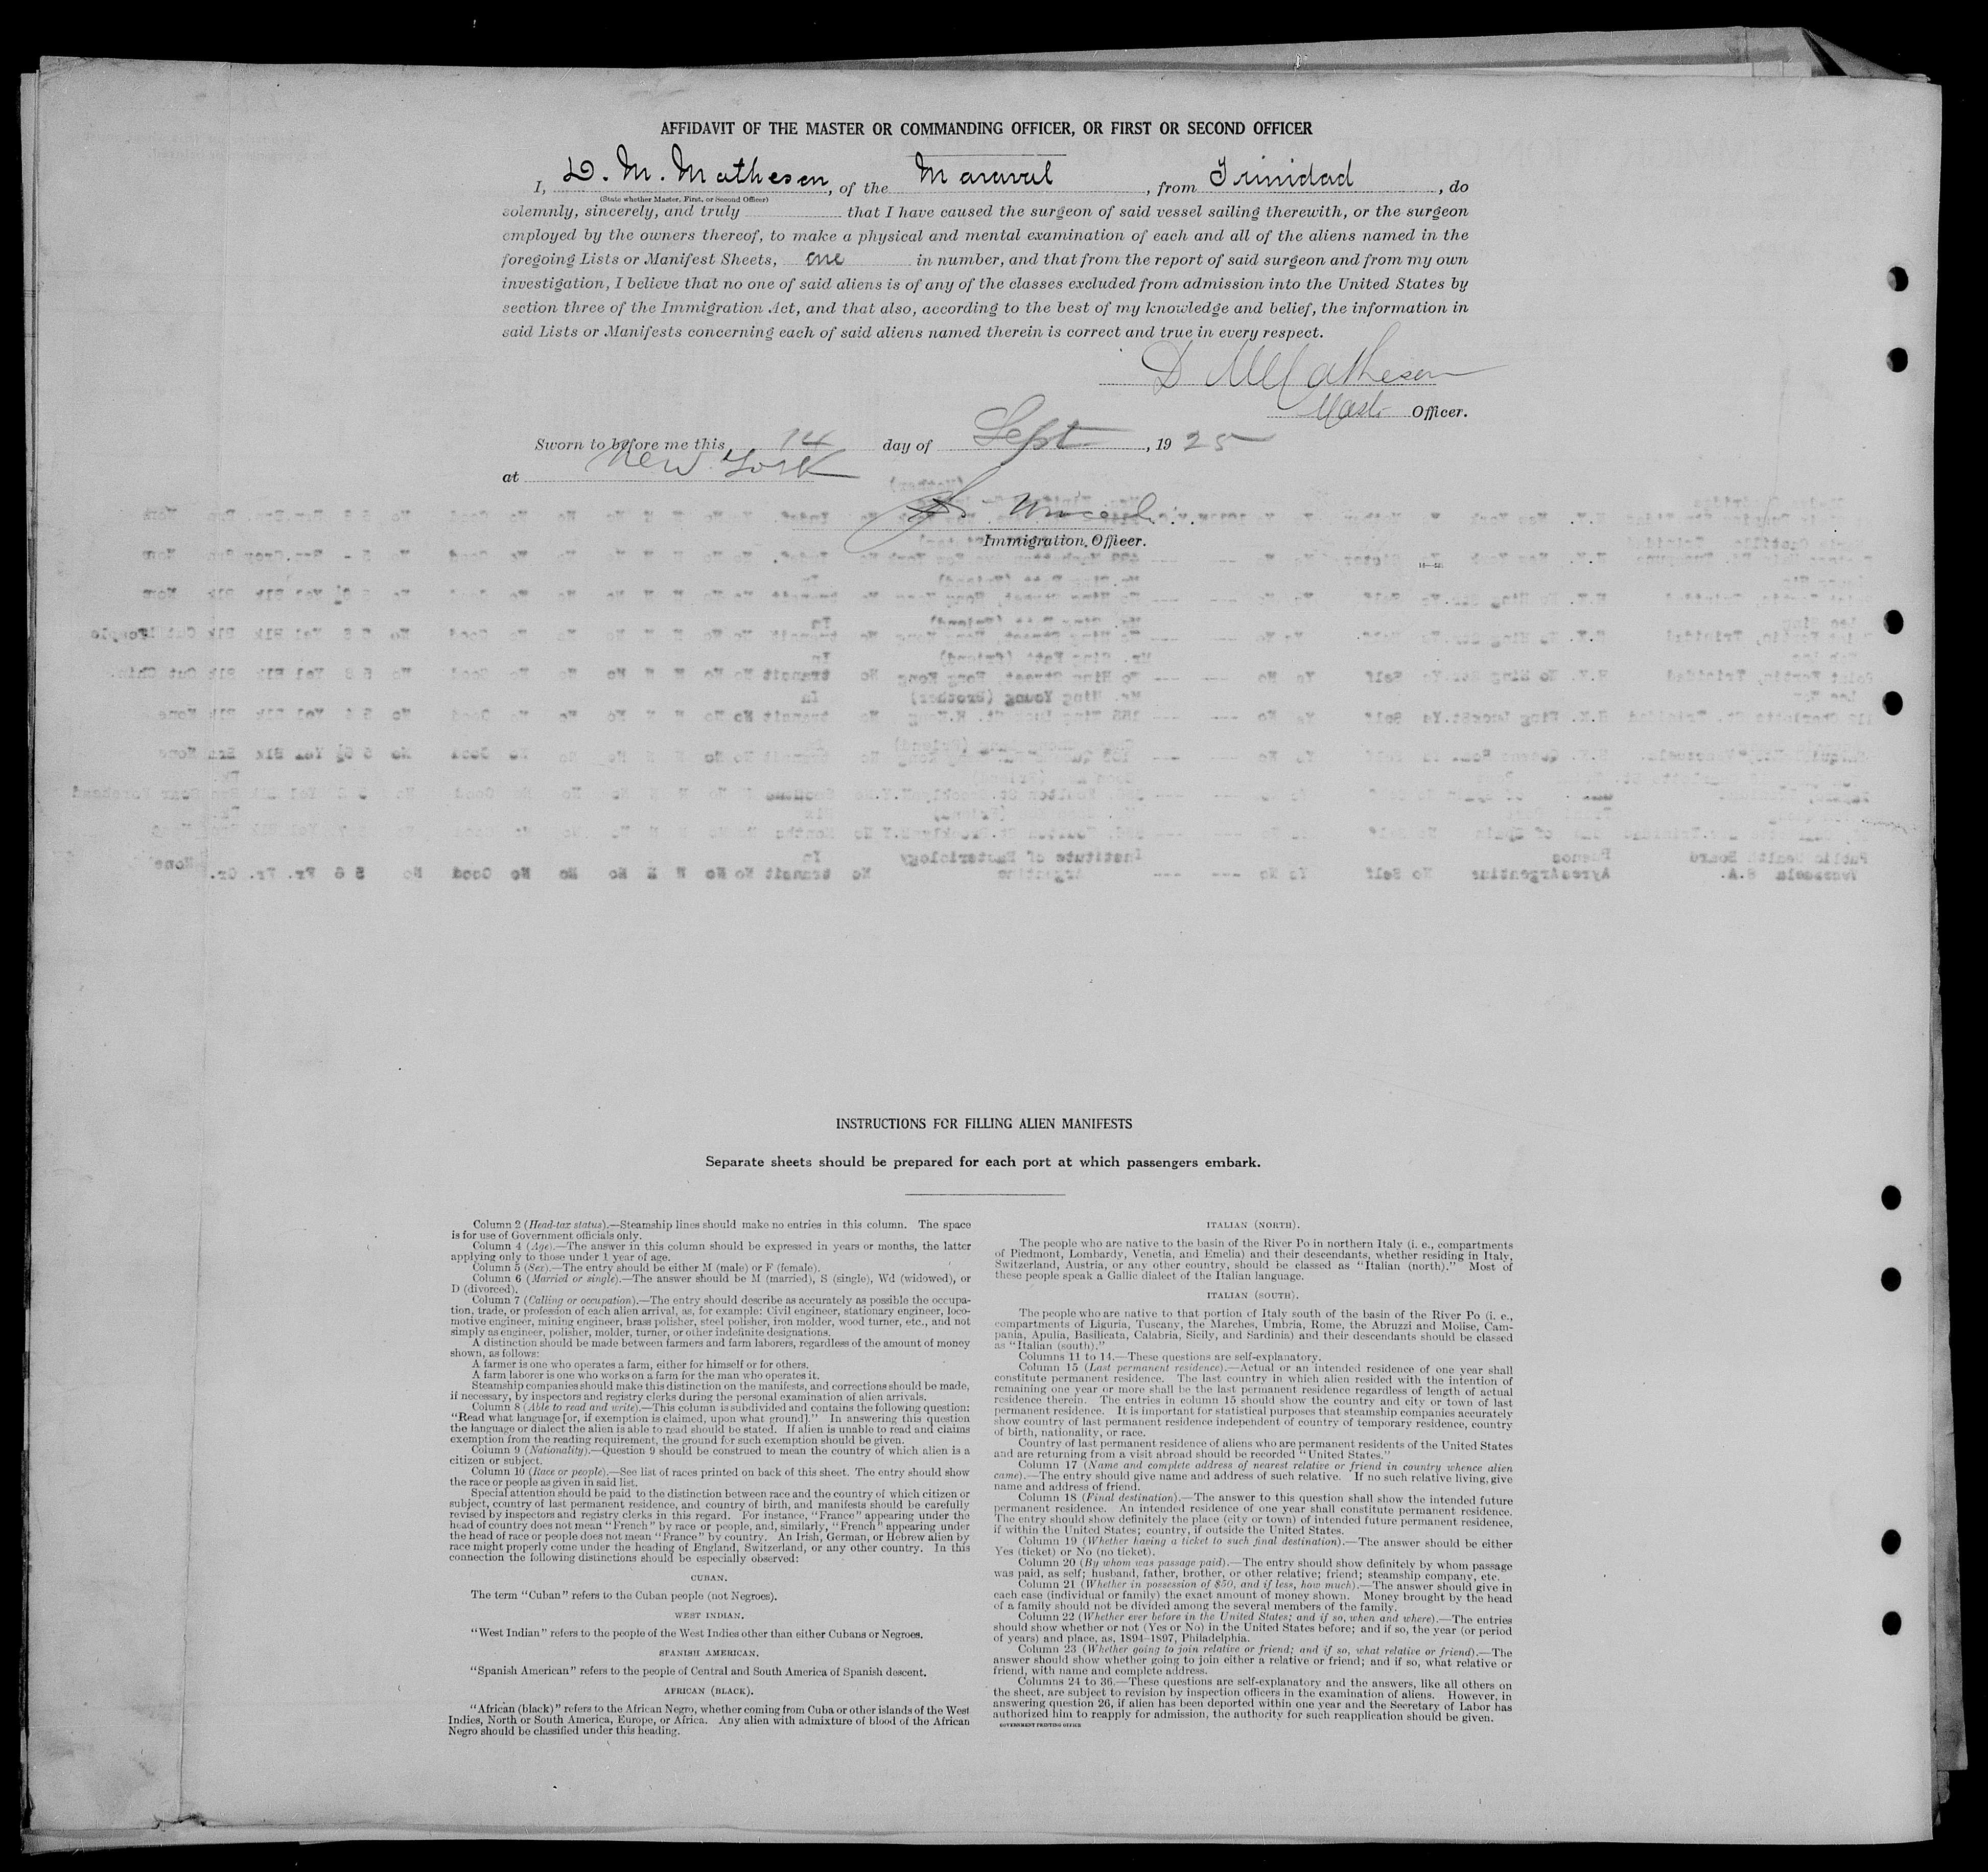 AFFIDAVIT OF THE MASTER OR COMMANDING OFFICER, OR FIRST OR SECOND OFFICER
I, D. M. Matheson, of the Maraval, from Trinidad, do
(State whether Master, First, or Second Officer)
solemnly, sincerely, and truly that I have caused the surgeon of said vessel sailing therewith, or the surgeon
employed by the owners thereof, to make a physical and mental examination of each and all of the aliens named in the
foregoing Lists or Manifest Sheets, one in number, and that from the report of said surgeon and from my own
investigation, I believe that no one of said aliens is of any of the classes excluded from admission into the United States by
section three of the Immigration Act, and that also, according to the best of my knowledge and belief, the information in
said Lists or Manifests concerning each of said aliens named therein is correct and true in every respect.
D M Matheson
Officer.
Sworn to before me this 14 day of Sept, 1925
at New York
Immigration Officer.
INSTRUCTIONS FOR FILLING ALIEN MANIFESTS
Separate sheets should be prepared for each port at which passengers embark.
Column 2 (Head-tax status).—Steamship lines should make no entries in this column. The space
is for use of Government officials only.
Column 4 (Age).—The answer in this column should be expressed in years or months, the latter
applying only to those under 1 year of age.
Column 5 (Sex).—The entry should be either M (male) or F (female).
Column 6 (Married or single).—The answer should be M (married), S (single), Wd (widowed), or
D (divorced).
Column 7 (Calling or occupation).—The entry should describe as accurately as possible the occupa-
tion, trade, or profession of each alien arrival, as, for example: Civil engineer, stationary engineer, loco-
motive engineer, mining engineer, brass polisher, steel polisher, iron molder, wood turner, etc., and not
simply as engineer, polisher, molder, turner, or other indefinite designations.
A distinction should be made between farmers and farm laborers, regardless of the amount of money
shown, as follows:
A farmer is one who operates a farm, either for himself or for others.
A farm laborer is one who works on a farm for the man who operates it.
Steamship companies should make this distinction on the manifests, and corrections should be made,
if necessary, by inspectors and registry clerks during the personal examination of alien arrivals.
Column 8 (Able to read and write).—This column is subdivided and contains the following question:
"Read what language [or, if exemption is claimed, upon what ground]." In answering this question
the language or dialect the alien is able to read should be stated. If alien is unable to read and claims
exemption from the reading requirement, the ground for such exemption should be given.
Column 9 (Nationality).—Question 9 should be construed to mean the country of which alien is a
citizen or subject.
Column 10 (Race or people).—See list of races printed on back of this sheet. The entry should show
the race or people as given in said list.
Special attention should be paid to the distinction between race and the country of which citizen or
subject, country of last permanent residence, and country of birth, and manifests should be carefully
revised by inspectors and registry clerks in this regard. For instance, "France" appearing under the
head of country does not mean "French" by race or people, and, similarly, "French" appearing under
the head of race or people does not mean "France" by country. An Irish, German, or Hebrew alien by
race might properly come under the heading of England, Switzerland, or any other country. In this
connection the following distinctions should be especially observed:
CUBAN.
The term "Cuban" refers to the Cuban people (not Negroes).
WEST INDIAN.
"West Indian" refers to the people of the West Indies other than either Cubans or Negroes.
SPANISH AMERICAN.
"Spanish American" refers to the people of Central and South America of Spanish descent.
AFRICAN (BLACK).
"African (black)" refers to the African Negro, whether coming from Cuba or other islands of the West
Indies, North or South America, Europe, or Africa. Any alien with admixture of blood of the African
Negro should be classified under this heading.
ITALIAN (NORTH).
The people who are native to the basin of the River Po in northern Italy (i. e., compartments
of Piedmont, Lombardy, Venetia, and Emelia) and their descendants, whether residing in Italy,
Switzerland, Austria, or any other country, should be classed as "Italian (north)." Most of
these people speak a Gallic dialect of the Italian language.
ITALIAN (SOUTH).
The people who are native to that portion of Italy south of the basin of the River Po (i. e.,
compartments of Liguria, Tuscany, the Marches, Umbria, Rome, the Abruzzi and Molise, Cam-
pania, Apulia, Basilicata, Calabria, Sicily, and Sardinia) and their descendants should be classed
as "Italian (south)."
Columns 11 to 14.—These questions are self-explanatory.
Column 15 (Last permanent residence).—Actual or an intended residence of one year shall
constitute permanent residence. The last country in which alien resided with the intention of
remaining one year or more shall be the last permanent residence regardless of length of actual
residence therein. The entries in column 15 should show the country and city or town of last
permanent residence. It is important for statistical purposes that steamship companies accurately
show country of last permanent residence independent of country of temporary residence, country
of birth, nationality, or race.
Country of last permanent residence of aliens who are permanent residents of the United States
and are returning from a visit abroad should be recorded "United States."
Column 17 (Name and complete address of nearest relative or friend in country whence alien
came).—The entry should give name and address of such relative. If no such relative living, give
name and address of friend.
Column 18 (Final destination).—The answer to this question shall show the intended future
permanent residence. An intended residence of one year shall constitute permanent residence.
The entry should show definitely the place (city or town) of intended future permanent residence,
if within the United States; country, if outside the United States.
Column 19 (Whether having a ticket to such final destination).—The answer should be either
Yes (ticket) or No (no ticket).
Column 20 (By whom was passage paid).—The entry should show definitely by whom passage
was paid, as self; husband, father, brother, or other relative; friend; steamship company, etc.
Column 21 (Whether in possession of $50, and if less, how much).—The answer should give in
each case (individual or family) the exact amount of money shown. Money brought by the head
of a family should not be divided among the several members of the family.
Column 22 (Whether ever before in the United States; and if so, when and where).—The entries
should show whether or not (Yes or No) in the United States before; and if so, the year (or period
of years) and place, as, 1894-1897, Philadelphia.
Column 23 (Whether going to join relative or friend; and if so, what relative or friend).—The
answer should show whether going to join either a relative or friend; and if so, what relative or
friend, with name and complete address.
Columns 24 to 36.—These questions are self-explanatory and the answers, like all others on
the sheet, are subject to revision by inspection officers in the examination of aliens. However, in
answering question 26, if alien has been deported within one year and the Secretary of Labor has
authorized him to reapply for admission, the authority for such reapplication should be given.
GOVERNMENT PRINTING OFFICE